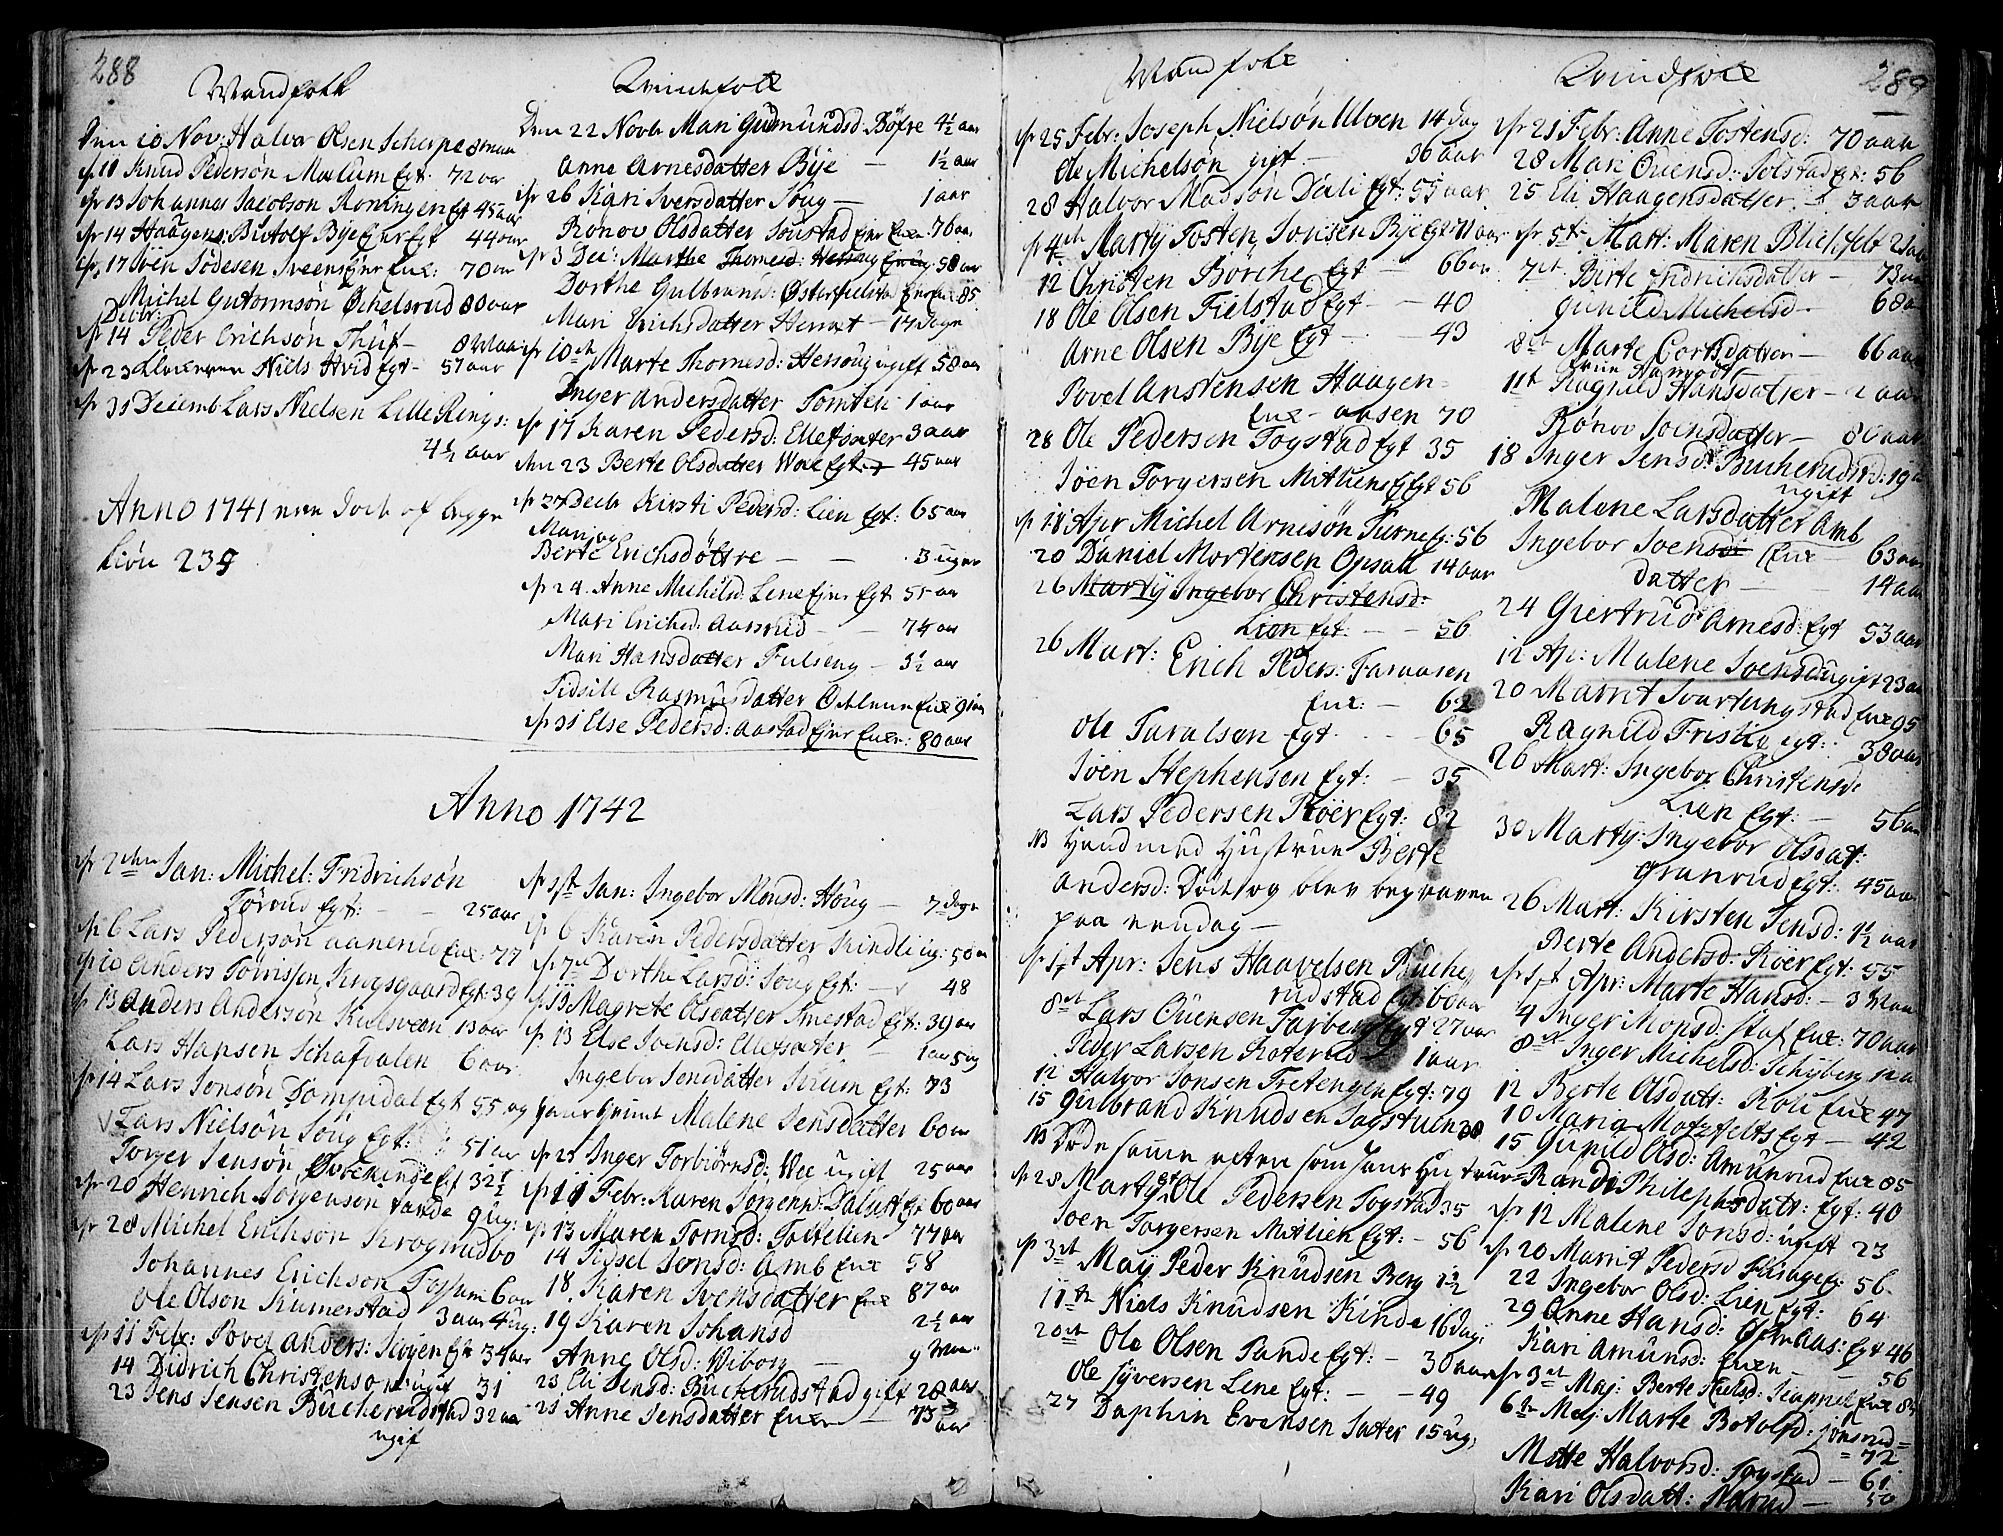 288
Mandfolk
Den 10 Nov: Halvor Olsen Scherpe 8 maan
11 Knud Pedersøn Melum Egt: 72 aar
13 Johannes Jacobson Roningen Egt 45 aar
14 Haagens: Butolf Bye Egt 44 aar
17 Sven Todesen Sveens Enk: 70 aar
Michel Gutormsøn Ochelsrud 80 aar
Decbr:
14 Peder Erichsøn Thuf 8 Maan
23 Niels Hvid Egt 57 aar
31 Decemb Lars Nielsen Lille Rings:
4½ aar
Anno 1741 ere døde af begge
Kiøn 239
Qvindfolk
Den 22 Novb Mari Gudmundsd: Böfre 4½ aar
Anne Arnesdatter Bije 1½ aar
26 Kari Iversdatter Soug 1 aar
Rønov Olsdatter Soustad Enke 76 aar
3 Dec: Marthe Thomesd: Hessoug 58 aar
Dorthe Gulbrands: Østerfielstad 85
Mari Erichsdatter Herset 14 dage
10 Marte Thomesd: Hessoug ugift 58 aar
Inger Andersdatter Tomten 1 aar
17 Karen Pedersd: Ellefsæter 3 aar
den 23 Berte Olsdatter Wole Egt 45 aar
27 Decb Kirsti Pedersd: Lien Egt: 65 aar
Mari og
Berte Erichsdøttre 3 uger
24 Anne Michelsd: Lene Egt 55 aar
Mari Erichsd: Aarsrud 74 aar
Mari Hansdatter Fulseng 3½ aar
Sidsele Rasmusdatter Enke 91 aar
31 Else Pedersd: Aastad Enke: 80 aar
Anno 1742
2den Jan: Michel Fridrichsøn
Törud Egt: 25 aar
6 Lars Pedersøn Aanerud Enk: 77
10 Anders Tønnissen Kongsgaard Egt: 39
13 Anders Andersøn Kulsveen 13 aar
Lars Hansen Schafdalen 6 aar
14 Lars Jonsøn Dompidal Egt 55 aar
Lars Nielsøn Soug Egt: 51 aar
Torger Jensøn Ovrekinde Egt 32½
20 Henrich Jørgensøn Lande 9 ug:
28 Michel Erichsøn Krogrudbo
Johannes Erichson Fossum 6 aar
Ole Olson Kumerstad 3 aar 4 ug:
11 Febr: Povel Anders: Skøyen Egt 34 aar
14 Didrich Christenson ugift 31
23 Jens Jensen Bucherudstad 32 aar
ugif
1ste Jan: Ingebor Monsd: Houg 7 dage
6 Karen Pedersdatter Kindliig: 50 aar
7de Dorthe Larsd: Soug Egt: 48
13 Magrete Olsdatter Smestad Egt: 39 aar
13 Else Joensd: Ellefsæter 1 aar 5 ug
Ingebor Jonsdatter Skium Egt: 73
Malene Jensdatter 60 aar
21 Inger Torbiørnsd: Wee ugift 25 aar
11 Febr: Karen Jørgensd: Egt 60 aar
13 Maren Tornsd: Toftelien 77 aar
14 Sidsel Jonsd: Amb Enk 58
18 Karen Svensdatter Enk 87 aar
19 Karen Johansd 2½ aar
Anne Olsd: Wiborg 9 Maan
23 Eli Jensd: Bucherudstad gift 28 aar
25 Anne Jensdatter Enke 73 aar
Mandfolk
25 Febr: Joseph Nielsøn Ulven 14 dag
Ole Michelsøn gift 36 aar
28 Halvor Madsøn Dæli Egt: 55 aar
4de Martij Tosten Jonsen Bye Egt 71 aar
12 Christen Børche Egt 66 aar
18 Ole Olsen Fielstad Egt 40
Arne Olsen Bye Egt 43
Povel Anstensen Haagen-
aasen Enk 70
28 Ole Pedersen Togstad Egt 35
Joen Torgersen Mitliens Egt 56
18 Apr Michel Arnisøn Eg: 56
20 Daniel Mortensen Opsall 14 aar
26 Martij Ingebor Christensd:
Lien Egt: 56
26 Mart: Erich Peders: Faraasen
Enk: 62
Ole Taralsen Egt 65
Joen Stephensen Egt: 35
Lars Pedersen Röer Egt: 82
NB Hand med Hustrue Berte
Andersd: døde og blev begraven
paa een dag
1st Apr: Jens Haavelsen Buche
rudstad Egt 60 aar
8de Lars Ouensen Farberg Egt 27 aar
Peder Larsen Roterud 1 aar
12 Halvor Jonsen Fretengen Egt: 79
15 Gulbrand Knudsen Sagstuen 38
NB Døde samme aften som hans Hustrue
28 Marty Ole Pedersen Togstad 35
Joen Torgersen Mitlien Egt: 56
3de Maij Peder Knudsen Berg 1½
11te Niels Knudsen Kinde 16 dage
20de Ole Olsen Sande Egt: 30 aar
Ole Syversen Lene Egt: 49
27 Daphin Evensen Sæter 15 ug:
Qvindfolk
289
21 Febr: Anne Tostensd: 70 aar
28 Mari Ouensd: Solstad Egt: 56
25 Eli Haagensdatter 3 aar
5te Mart: Maren Blichfelt 21 aar
7de Berte Fridrichsdatter 73 aar
Gunild Michelsd 68 aar
8de Marte Cortsdatter 66 aar
11te Ragnild Hansdatter 2 aar
Rønov Joensdatter 80 aar
18 Inger Jensd: Bucherudsd: 19
ugift
Malene Larsdatter Amb
Enk 63 aar
Ingebor Joens
datter 14 aar
24 Giertrud Arnesd: Egt 53 aar
12 Ap: Malene Joensd ugift 23 aar
20 Marrit Svartungstad Enk 95
Ragnild Frisli Egt: 38 aar
26 Mart: Ingebor Christensd
Lien Egt: 56 aar
30 Martij Ingebor Olsdat:
Granrud Egt: 45 aar
26 Mart: Kirsten Jensd: 1½ aar
Berte Andersd: Röer Egt: 55
1st Apr: Marte Hansd: 3 Maan
4 Inger Monsd: Staf Enk: 70 aar
8de Inger Michelsd: Schyberg
12 Berte Olsdatt: Koli Enk 47
10 Maria Motzfelts Egt 42
15 Gunild Olsd: Amunrud Enk 85
Randi Philephsdatt: Egt: 40
12 Malene Jonsd: ugift 23
20 Marrit Pedersd Egt: 56
22 Ingebor Olsd: Lien Egt: 64
29 Anne Hansd: Egt 46
Kari Amunsd: Enke 56
3de Maj: Berte Enk 84
6te Maij: Marte Botolfsd: Jonsrud
72
Mette Halvorsd: Togstad 61
Kari Olsdatt: Narud 50